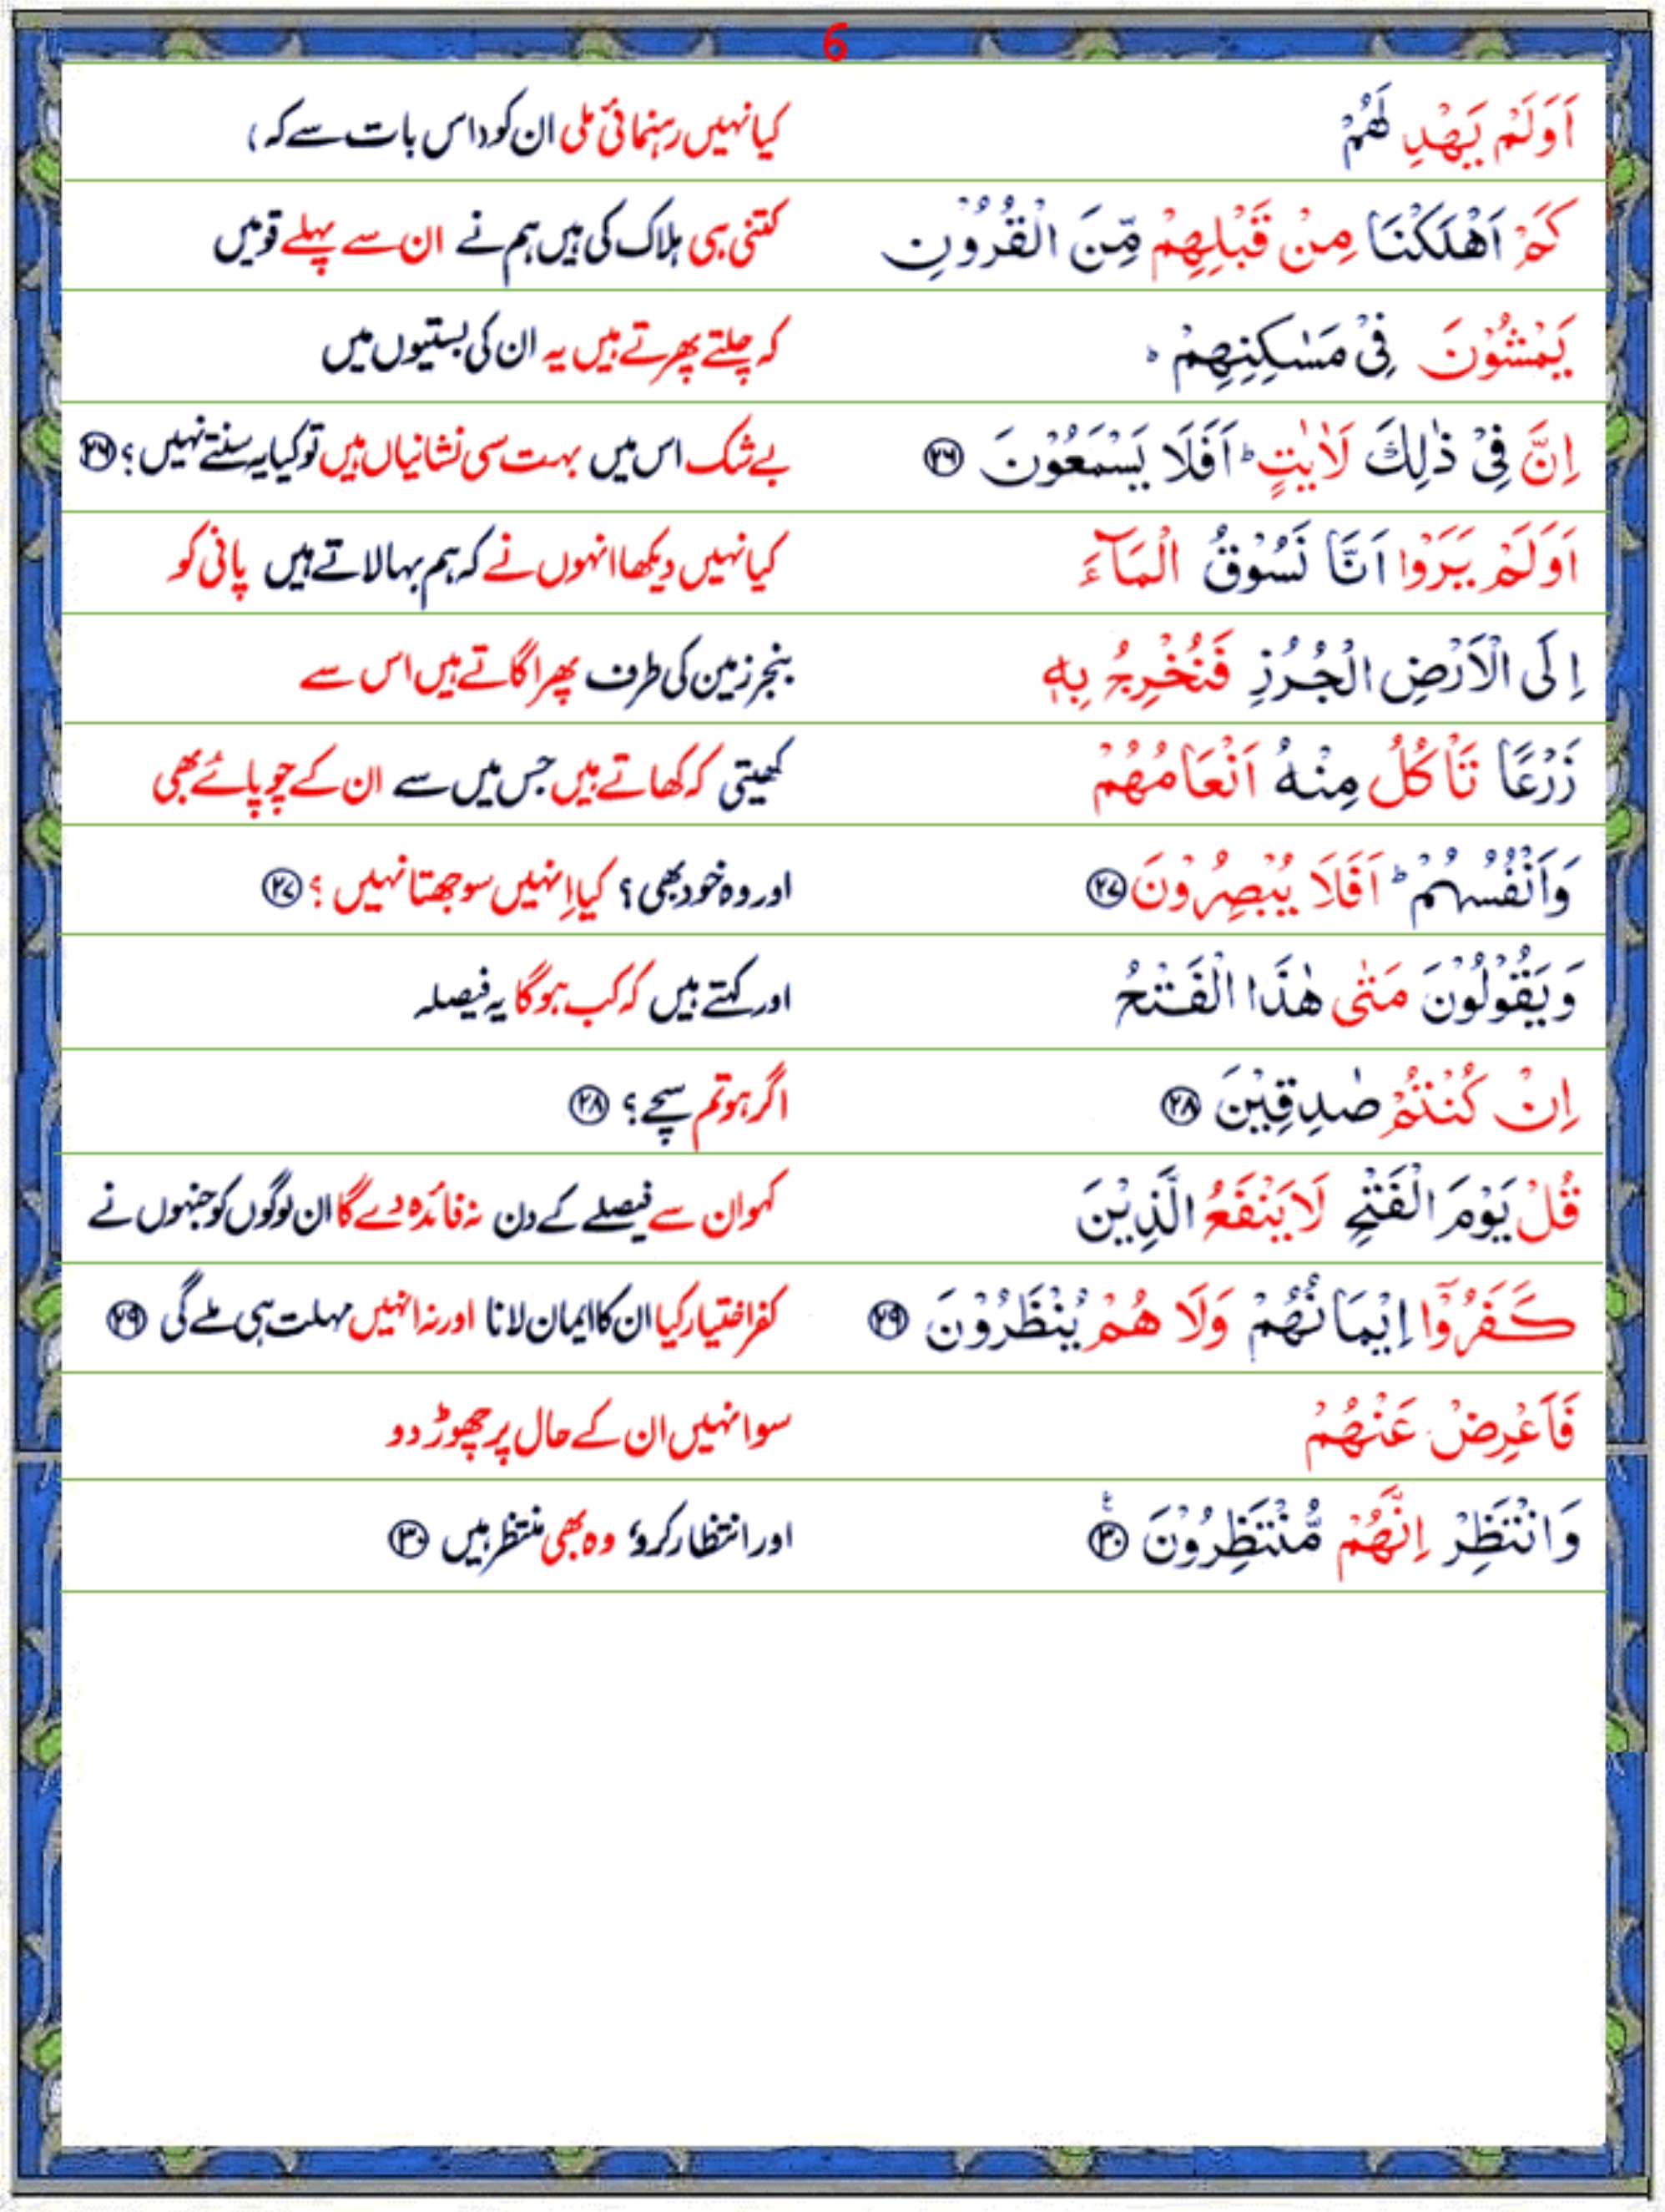 6
اَوَلَمْ يَهْدِ لَهُمْ
کیا نہیں رہنمائی ملی ان کو (اس بات سے کہ)
كَمْ اَهْلَكْنَا مِنْ قَبْلِهِمْ مِّنَ الْقُرُوْنِ
کتنی ہی ہلاک کی ہیں ہم نے ان سے پہلے قومیں
يَمْشُوْنَ فِيْ مَسٰكِنِهِمْ ؕ
کہ چلتے پھرتے ہیں یہ ان کی بستیوں میں
اِنَّ فِيْ ذٰلِكَ لَاٰيٰتٍ ؕ اَفَلَا يَسْمَعُوْنَ ۲۶
بے شک اس میں بہت سی نشانیاں ہیں تو کیا یہ سنتے نہیں؟ ۲۶
اَوَلَمْ يَرَوْا اَنَّا نَسُوْقُ الْمَآءَ
کیا نہیں دیکھا انہوں نے کہ ہم بہا لاتے ہیں پانی کو
اِلَى الْاَرْضِ الْجُرُزِ فَنُخْرِجُ بِهٖ
بنجر زمین کی طرف پھر اگاتے ہیں اس سے
زَرْعًا تَاْكُلُ مِنْهُ اَنْعَامُهُمْ
کھیتی کہ کھاتے ہیں جس میں سے ان کے چوپائے بھی
وَاَنْفُسُهُمْ ؕ اَفَلَا يُبْصِرُوْنَ ۲۷
اور وہ خود بھی؟ کیا اِنہیں سوجھتا نہیں؟ ۲۷
وَيَقُوْلُوْنَ مَتٰى هٰذَا الْفَتْحُ
اور کہتے ہیں کہ کب ہوگا یہ فیصلہ
اِنْ كُنْتُمْ صٰدِقِيْنَ ۲۸
اگر ہو تم سچے؟ ۲۸
قُلْ يَوْمَ الْفَتْحِ لَا يَنْفَعُ الَّذِيْنَ
کہو ان سے فیصلے کے دن نہ فائدہ دے گا ان لوگوں کو جنہوں نے
كَفَرُوْۤا اِيْمَانُهُمْ وَلَا هُمْ يُنْظَرُوْنَ ۲۹
کفر اختیار کیا ان کا ایمان لانا اور نہ انہیں مہلت ہی ملے گی ۲۹
فَاَعْرِضْ عَنْهُمْ
سو انہیں ان کے حال پر چھوڑ دو
وَانْتَظِرْ اِنَّهُمْ مُّنْتَظِرُوْنَ ۳۰ ع
اور انتظار کرو، وہ بھی منتظر ہیں ۳۰